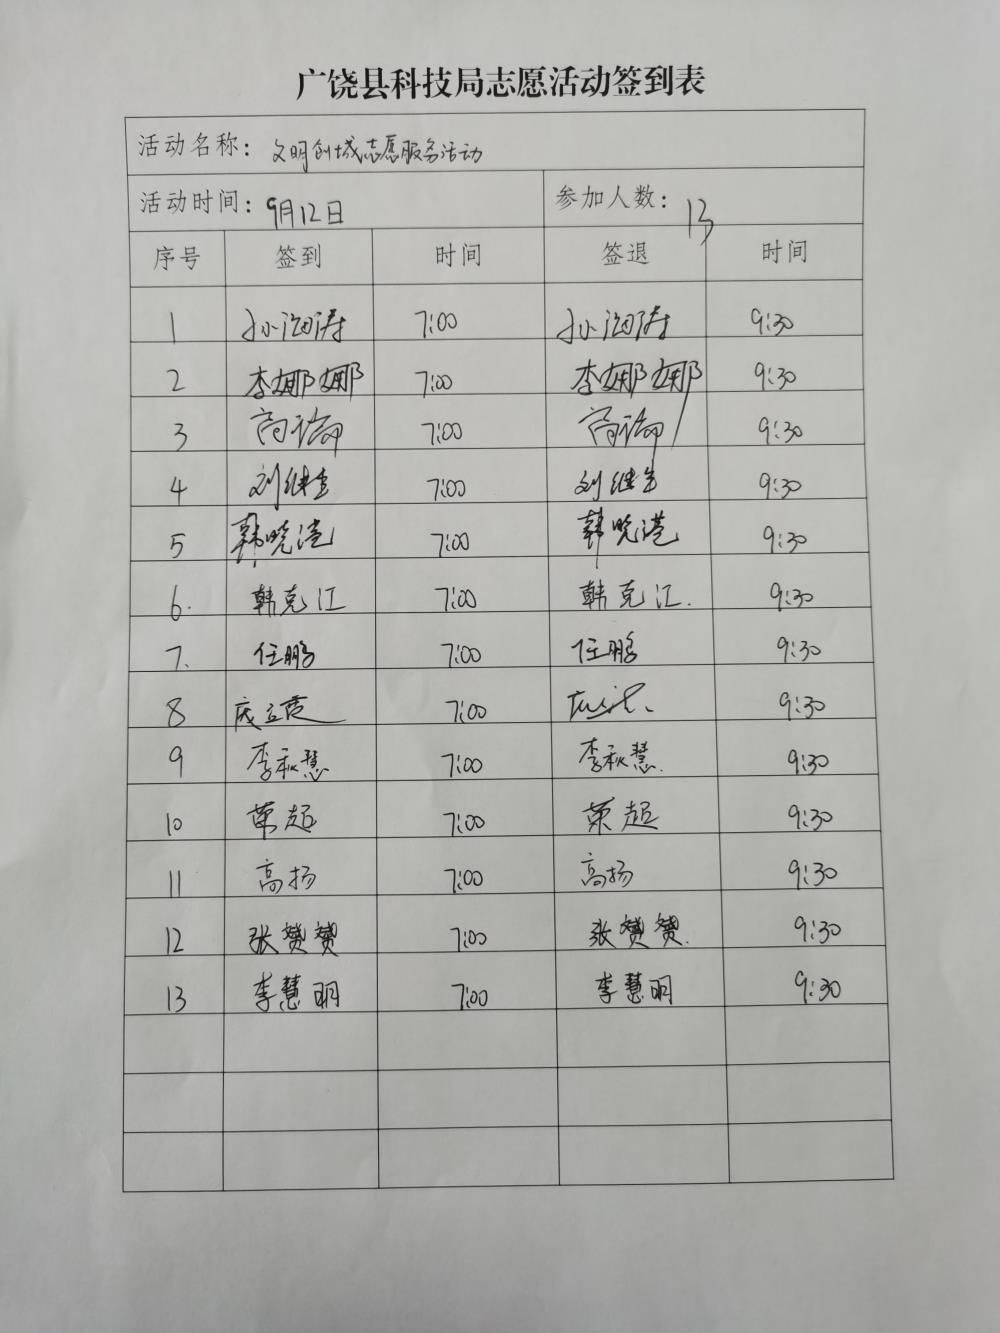 广饶县科技局志愿活动签到表
活动名称：文明创城志愿服务活动
活动时间：9月12日 参加人数：13
序号 签到 时间 签退 时间
1 孙海涛 7:00 孙海涛 9:30
2 李娜娜 7:00 李娜娜 9:30
3 7:00 9:30
4 刘继生 7:00 刘继生 9:30
5 韩晓港 7:00 韩晓港 9:30
6. 韩克江 7:00 韩克江. 9:30
7. 任鹏 7:00 任鹏 9:30
8 7:00 9:30
9 李秋慧 7:00 李秋慧. 9:30
10 荣超 7:00 荣超 9:30
11 高扬 7:00 高扬 9:30
12 张赞赞 7:00 张赞赞. 9:30
13 李慧明 7:00 李慧明 9:30